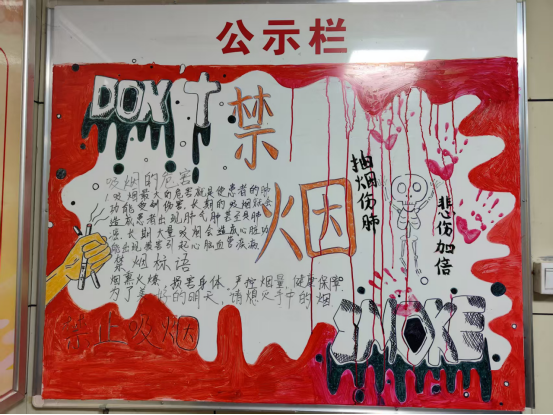 公示栏
DON'T
禁
烟
抽烟伤肺
悲伤加倍
吸烟的危害
1.吸烟最大的危害就是使患者的肺
功能受到伤害,长期的吸烟就会
造成患者出现肺气肿甚至肺
长期大量吸烟会造成心脏功
能出现损害引起心脑血管疾病
禁烟标语
烟熏火燎,损害身体,严控烟量,健康保障
为了美好的明天,请熄灭手中的烟
禁止吸烟
SMOKE